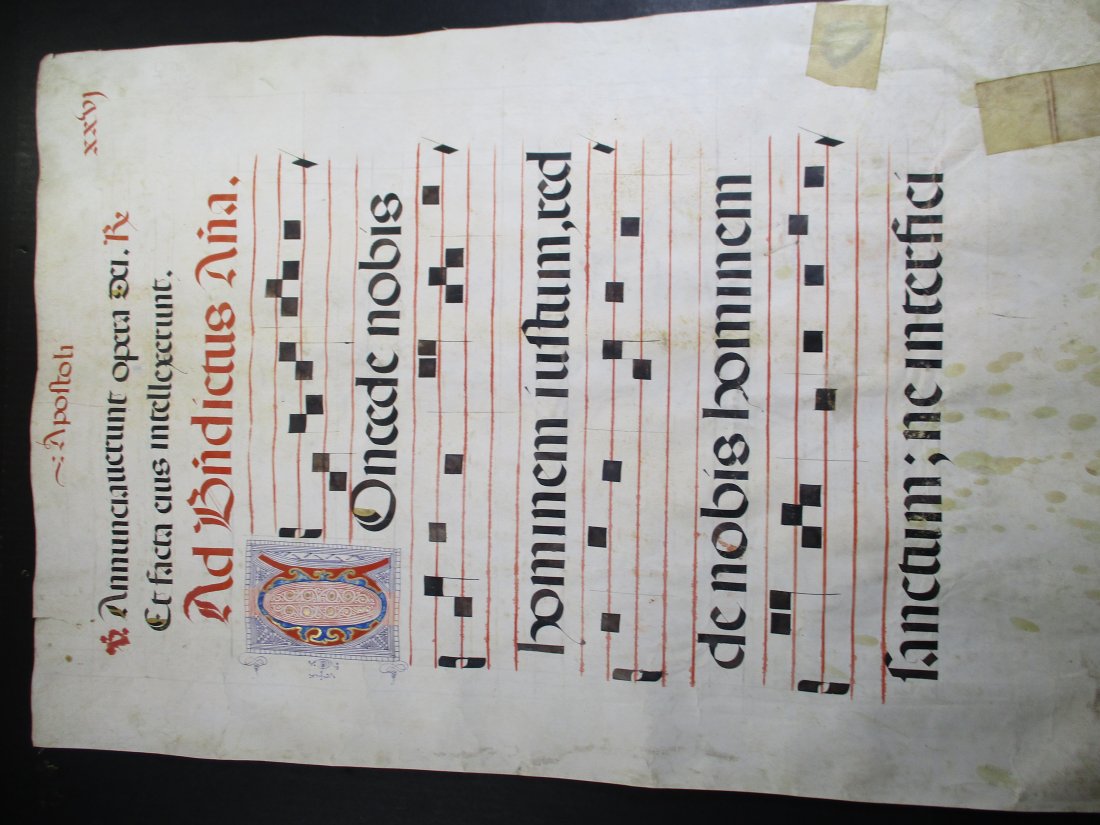 Apostoli
xxvj
℣. Annunciaverunt opera Dei. ℟.
Et facta eius intellexerunt.
Ad Bn̄dictus Añā.
COncede nobis
hominem iustum, red
de nobis hominem
sanctum; ne interfici